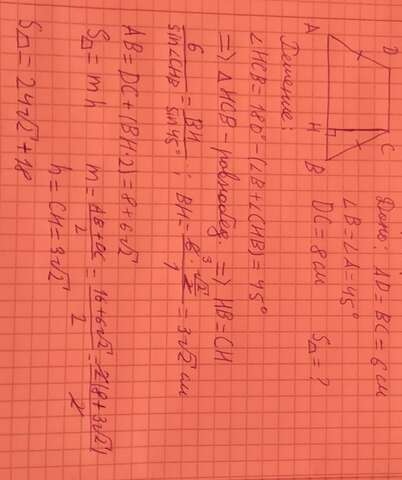 A D H C B
Дано: AD = BC = 6 см
∠B = ∠A = 45°
DC = 8 см S△ = ?
Решение:
∠HCB = 180° − (∠B + ∠CHB) = 45°
=> △HCB − равнобед. => HB = CH
6/sin∠CHB = BH/sin45°; BH = 6·√2/2 / 1 = 3√2 см
AB = DC + (BH·2) = 8 + 6√2
S△ = mh m = AB + DC/2 = 16 + 6√2/2 = 2(8 + 3√2)/2
h = CH = 3√2
S△ = 24√2 + 18